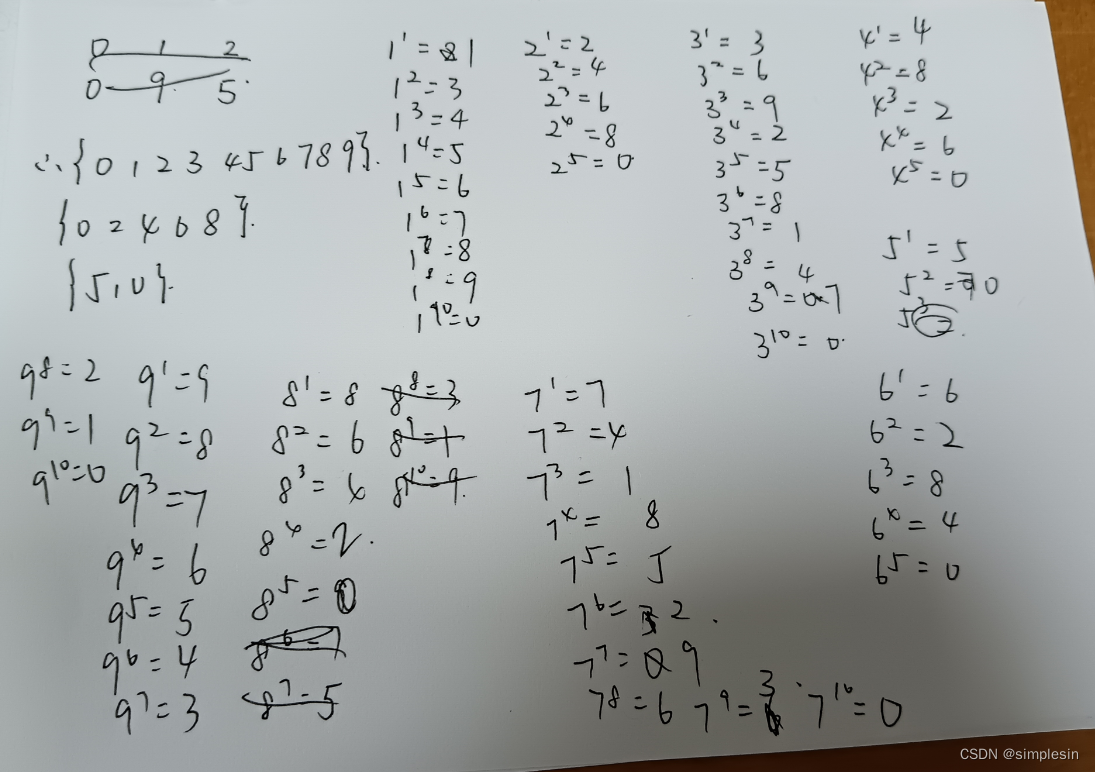 0 1 2
0 9 5.
∴{0 1 2 3 4 5 6 7 8 9}.
{0 2 4 6 8}.
{5, 0}.
1¹ = 1
1² = 3
1³ = 4
1⁴ = 5
1⁵ = 6
1⁶ = 7
1⁷ = 8
1⁸ = 9
1¹⁰ = 0
2¹ = 2
2² = 4
2³ = 6
2⁴ = 8
2⁵ = 0
3¹ = 3
3² = 6
3³ = 9
3⁴ = 2
3⁵ = 5
3⁶ = 8
3⁷ = 1
3⁸ = 4
3⁹ = 7
3¹⁰ = 0.
4¹ = 4
4² = 8
4³ = 2
4⁴ = 6
4⁵ = 0
5¹ = 5
5² = 0
9⁸ = 2
9⁹ = 1
9¹⁰ = 0
9¹ = 9
9² = 8
9³ = 7
9⁴ = 6
9⁵ = 5
9⁶ = 4
9⁷ = 3
8¹ = 8
8² = 6
8³ = 4
8⁴ = 2.
8⁵ = 0
8⁷ = 5
8⁸ = 3
8⁹ = 1
8¹⁰ = 9.
7¹ = 7
7² = 4
7³ = 1
7⁴ = 8
7⁵ = 5
7⁶ = 2.
7⁷ = 9
7⁸ = 6 7⁹ = 3 7¹⁰ = 0
6¹ = 6
6² = 2
6³ = 8
6⁴ = 4
6⁵ = 0
CSDN @simplesin